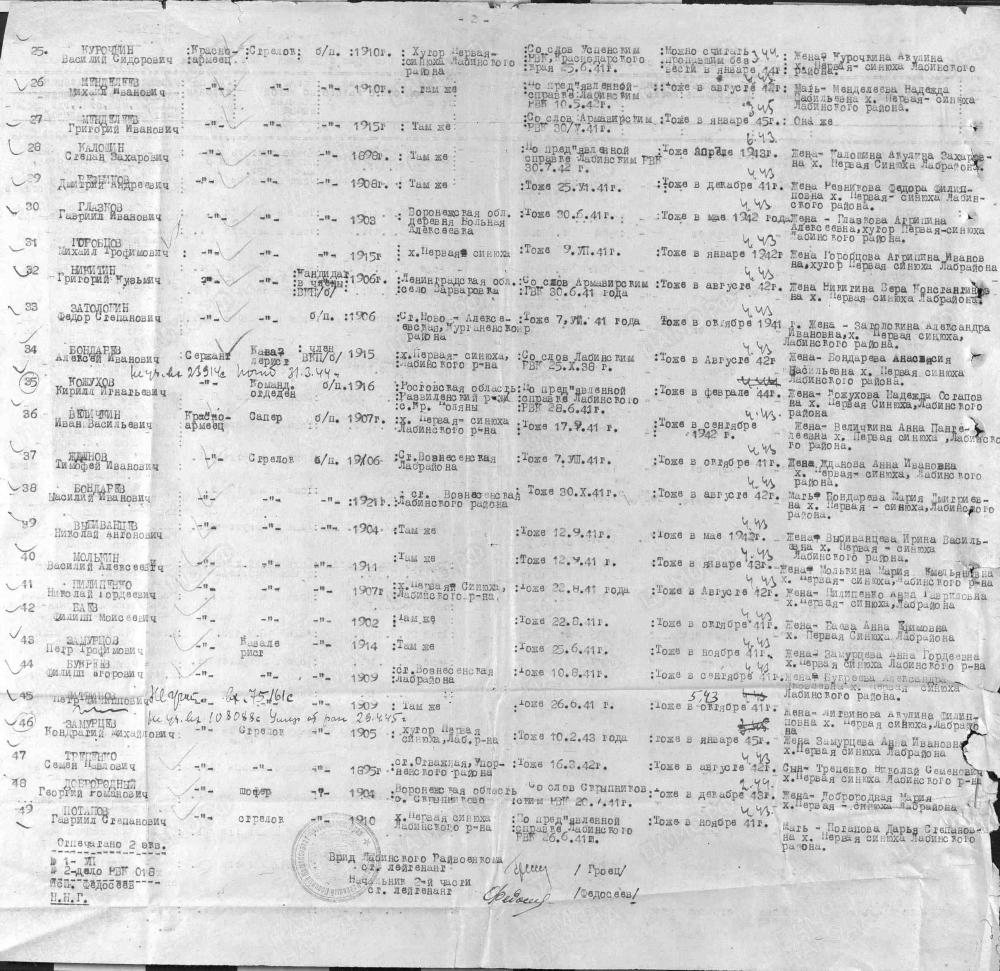 - 2 -
25. КУРОЧКИН Василий Сидорович :Красно-армеец :Стрелок: б/п. :1910г. : Хутор Первая-синюха Лабинского района :Со слов Успенским РВК, Краснодарского края 25.6.41г. :Можно считать пропавшим без вести в январе 44г. Жена- Курочкин Акулина х. Первая-синюха Лабинского района.
26 МЕНДЕЛЕЕВ Михаил Иванович -"- -"- -"- 1910г. : там же :По пред"явленной справке Лабинским РВК 10.5.42г. :Тоже в августе 42г: Мать- Менделеева Надежда х. Первая- синюха Лабинского района.
27 МЕНДЕЛЕЕВ Григорий Иванович -"- -"- -"- 1915г : Там же :Со слов Армавирским РВК 30/У.41г. :Тоже в январе 45г.: Она же
28 КАЛОШИН Степан Захарович -"- -"- -"- 1898г. : Там же :По пред"явленной справке Лабинским РВК 30.7.42 г. :Тоже 1943г. Жена- Калошина Акулина Захаров-на х. Первая Синюха Лабрайона.
29 РЕЗНИКОВ Дмитрий Андреевич -"- -"- -"- 1908г. : Там же :Тоже 25.У1.41г. :Тоже в декабре 41г. Жена Резникова Федора Филип-повна х. Первая- синюха Лабин-ского района.
30 ГЛАЗКОВ Гавриил Иванович -"- -"- -"- 1903 : Воронежская обл. деревня Вольная Алексеевка :Тоже 20.6.41г. :Тоже в мае 1942 года Жена - Глазкова Агрипина Алексеевна, хутор Первая-синюха Лабинского района.
31 ГОРОБЦОВ Михаил Трофимович -"- -"- -"- 1915г : х.Первая синюха :Тоже 9.УП.41г. :Тоже в январе 1942г Жена Горобцова Агрипина Иванов на, хутор Первая синюха Лабрайона
32 НИКИТИН Григорий Кузьмич -"- -"- :Кандидат в члены ВКП/б/ 1906г. :Ленинградская обл. село Варваровка :Со слов Армавирским РВК 30.6.41 года :Тоже в августе 42г. Жена Никитина Вера Константинов на х. Первая Синюха Лабрайона.
33 ЗАТОЛОКИН Федор Степанович -"- -"- б/п. :1906 :Ст.Ново - Алексе-евская, Курганенского района :Тоже 7,УШ. 41 года Тоже в октябре 1941 г. Жена - Затолокина Александра Ивановна, х. Первая синюха, Лабинского района.
34 БОНДАРЕВ Алексей Иванович Сержант Кавалерист :член ВКП/б/ 1915 :х.Первая- синюха, Лабинского р-на :Со слов Лабинским РВК 25.X.38 г. :Тоже в Августе 42г Жена- Бондарева Анастасия Васильевна х. Первая синюха Лабинского района.
35 КОЖУХОВ Кирилл Игнатьевич -"- Команд. отделен б/п.1916 :Ростовская область Развиленский р-н с.Кр. Поляны :По пред"явленной справке Лабинского РВК 28.6.41г. :Тоже в феврале 44г. Жена- Кожухова Надежда Остапов на х. Первая Синюха, Лабинского района
36 ВЕЛИЧКИН Иван Васильевич Красно-армеец Сапер б/п 1907г. :х. Первая- синюха Лабинского р-на :Тоже 17.9.41 г :Тоже в сентябре 1942 г. Жена- Величкина Анна Панте-леевна х. Первая синюха, Лабинско го района.
37 ЖДАНОВ Тимофей Иванович -"- Стрелок б/п. 1906 :Ст.Вознесенская Лабрайона :Тоже 7.УШ.41г. :Тоже в октябре 41г. Жена Жданова Анна Ивановна х. Первая- синюха, Лабинского района.
38 БОНДАРЕВ Василий Иванович -"- -"- -"- 1921г. : ст. Вознесенская Лабинского района :Тоже 30.X.41г. :Тоже в августе 42г. Мать Бондарева Мария Дмитриев-на х. Первая - синюха, Лабинского района.
39 ВЫШИВАНЦЕВ Николай Антонович -"- -"- -"- 1904- :Там же :Тоже 12.9.41г. :Тоже в мае 1942г. Жена- Ирина Василь-евна х. Первая - синюха Лабинского района.
40 МОЛЬКИН Василий Алексеевич -"- -"- -"- 1911 :Там же :Тоже 12.9.41г :Тоже в январе 43г. Жена- Молькина Мария Емельяновна х. Первая- синюха, Лабинского р-на
41 ПИЛИПЕНКО Николай Гордеевич -"- -"- -"- 1907г :х.Первая Синюха, Лабинского р-на. :Тоже 22.8.41 года :Тоже в Августе 42г. Жена- Пилипенко Анна Гавриловна х.Первая- синюха, Лабрайона
42 БАЕВ Филипп Моисеевич -"- -"- -"- 1902 :Там же :Тоже 22.8.41г. :Тоже в октябре 41г. Жена- Баева Анна Ефимовна х. Первая Синюха Лабрайона
43 ЗАМУРЦОВ Петр Трофимович -"- Кавале рист -"- 1914 :Там же :Тоже 25.6.41г. :Тоже в ноябре 41г. Жена- Замурцева Анна Гордеевна х. Первая синюха Лабинского р-на
44 БУГРЕЕВ Филипп Егорович -"- -"- -"- 1909 :ст.Вознесенская Лабрайона :Тоже 10.8.41г. :Тоже в сентябре 41г. Жена Бугреева Александра х. Первая синюха Лабинского района.
45 ЛИТВИНОВ Петр Филиппович вх. 75/61с 1909 :Там же :Тоже 26.6.41 г. :Тоже в октябре 41г. Жена- Литвинова Акулина Филип-повна х. Первая синюха, Лабрайо на
46 ЗАМУРЦЕВ Кондратий Михайлович -"- Стрелок -"- 1905 : хутор Первая синюха, Лаб. р-на :Тоже 10.2.43 года :тоже в январе 45г. Жена Замурцева Анна Ивановна х. Первая синюха, Лабрайона
47 ТРЕПЕНКО Семен Павлович -"- -"- -"- 1895г. :ст.Отважная, Упор-ненского района :Тоже 16.3.42г. :Тоже в августе 42г. Сын- Трепенко Николай Семенович х.Первая синюха Лабинского р-на.
48 ДОБРОРОДНЫЙ Георгий Романович -"- шофер -"- 1904 :Воронежская область с. Скрыпниково :Со слов Скрыпников-ским РВК 20.7.41г. :Тоже в декабре 43г. Жена- Доброродная Мария х.Первая - синюха Лабрайона
49 ПОТАПОВ Гавриил Степанович -"- стрелок -"- 1910 :х.Первая синюха Лабинского р-на :По пред"явленной справке Лабинского РВК 26.6.41г. :Тоже в ноябре 41г. Мать - Потапова Дарья Степанов-на х. Первая синюха Лабинского района.
Отпечатано 2 экз.
№ 2-дело РВК 018
Исп. Федосеев
П.Н.Г.
Врид Лабинского Райвоенкома
ст. лейтенант /Гроец/
Начальник 2-й части
ст. лейтенант /Федосеев/